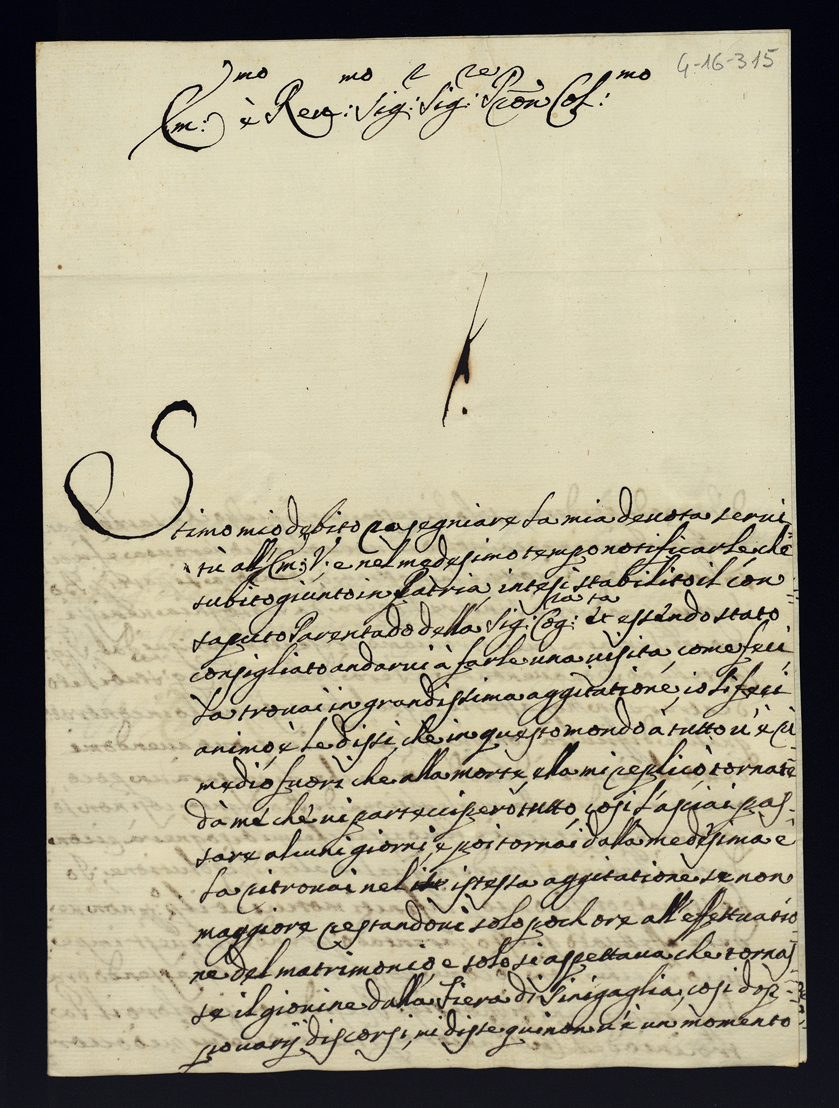 4-16-315
Em:mo è Reu:mo Sig:r Sig:re Pron Col:mo
Stimo mio debito rasegniare la mia deuota serui
tù all'Em: V: e nel medesimo tempo notificarle che
subito giunto in Patria intesi stabilito il con
saputo Parentado della Sig:ra Cog:ta et essendo stato
consigliato andarui à farle una uisita, come feci
la trouai in grandissima aggitatione, io li feci
animo, è le dissi che in questo mondo à tutto u'è ri
medio fuori che alla morte, ella mi replicò tornate
dà me che ui parteciperò tutto, così lasciai pas-
sare alcuni giorni e poi tornai dalla medesima e
la ritrouai nel istessa aggitatione se non
maggiore restandoui solo poch'ore all'effettuatio
ne del matrimonio, e solo si aspettaua che tornas
se il giouine dalla Fiera di Sinigaglia, così dop-
po uarij discorsi, mi disse qui non u'è un momento